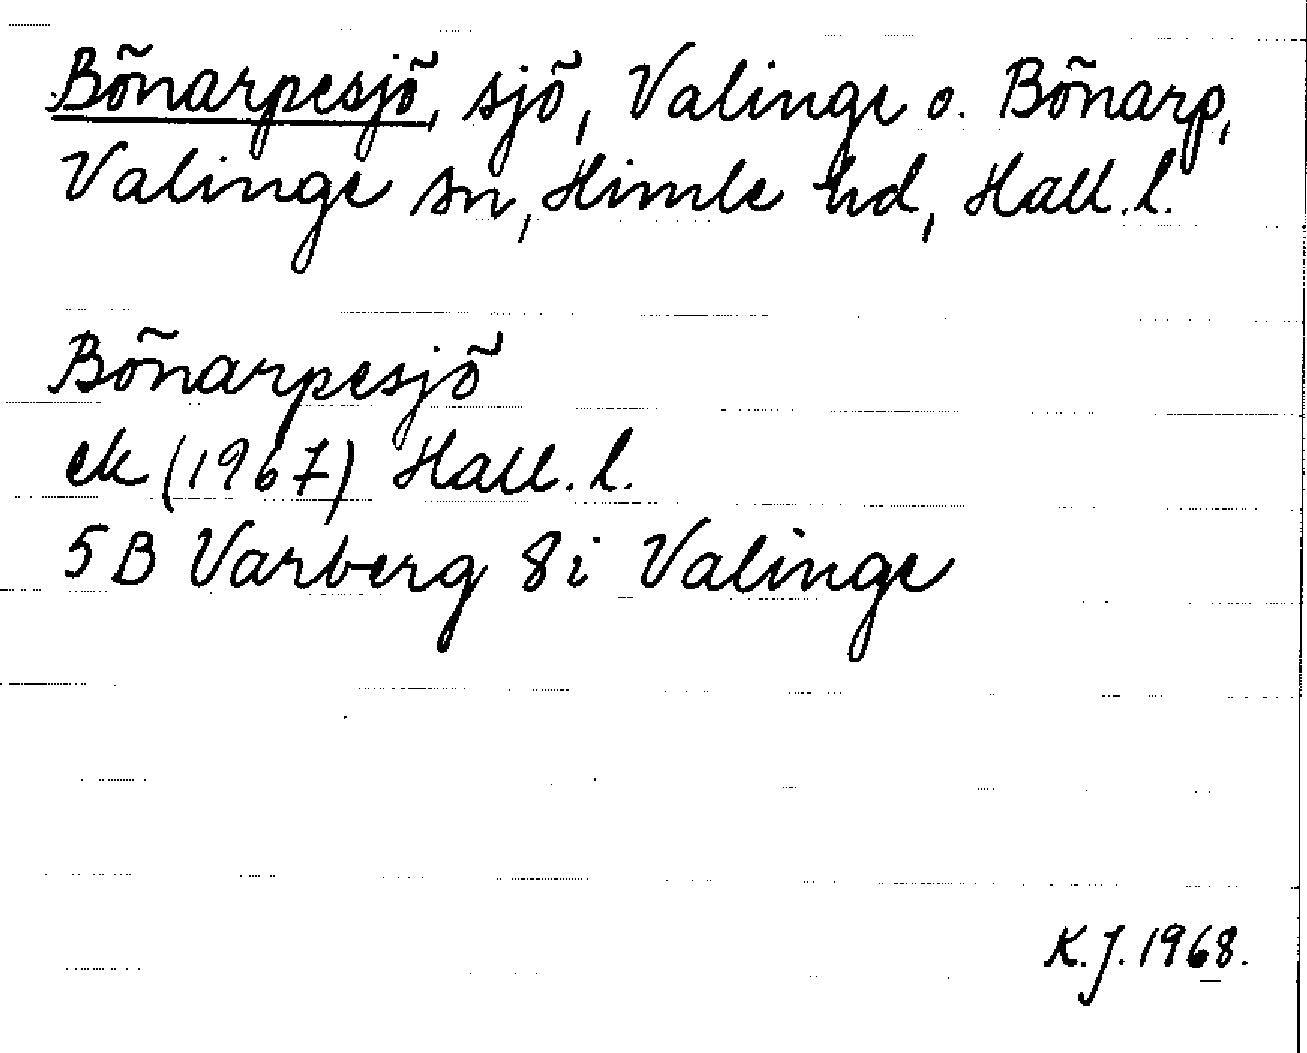 Bönarpesjö, sjö, Valinge o. Bönarp,
Valinge sn, Himle hd, Hall. l.
Bönarpesjö
ek (1967) Hall. l.
5B Varberg 8i Valinge
K.J. 1968.